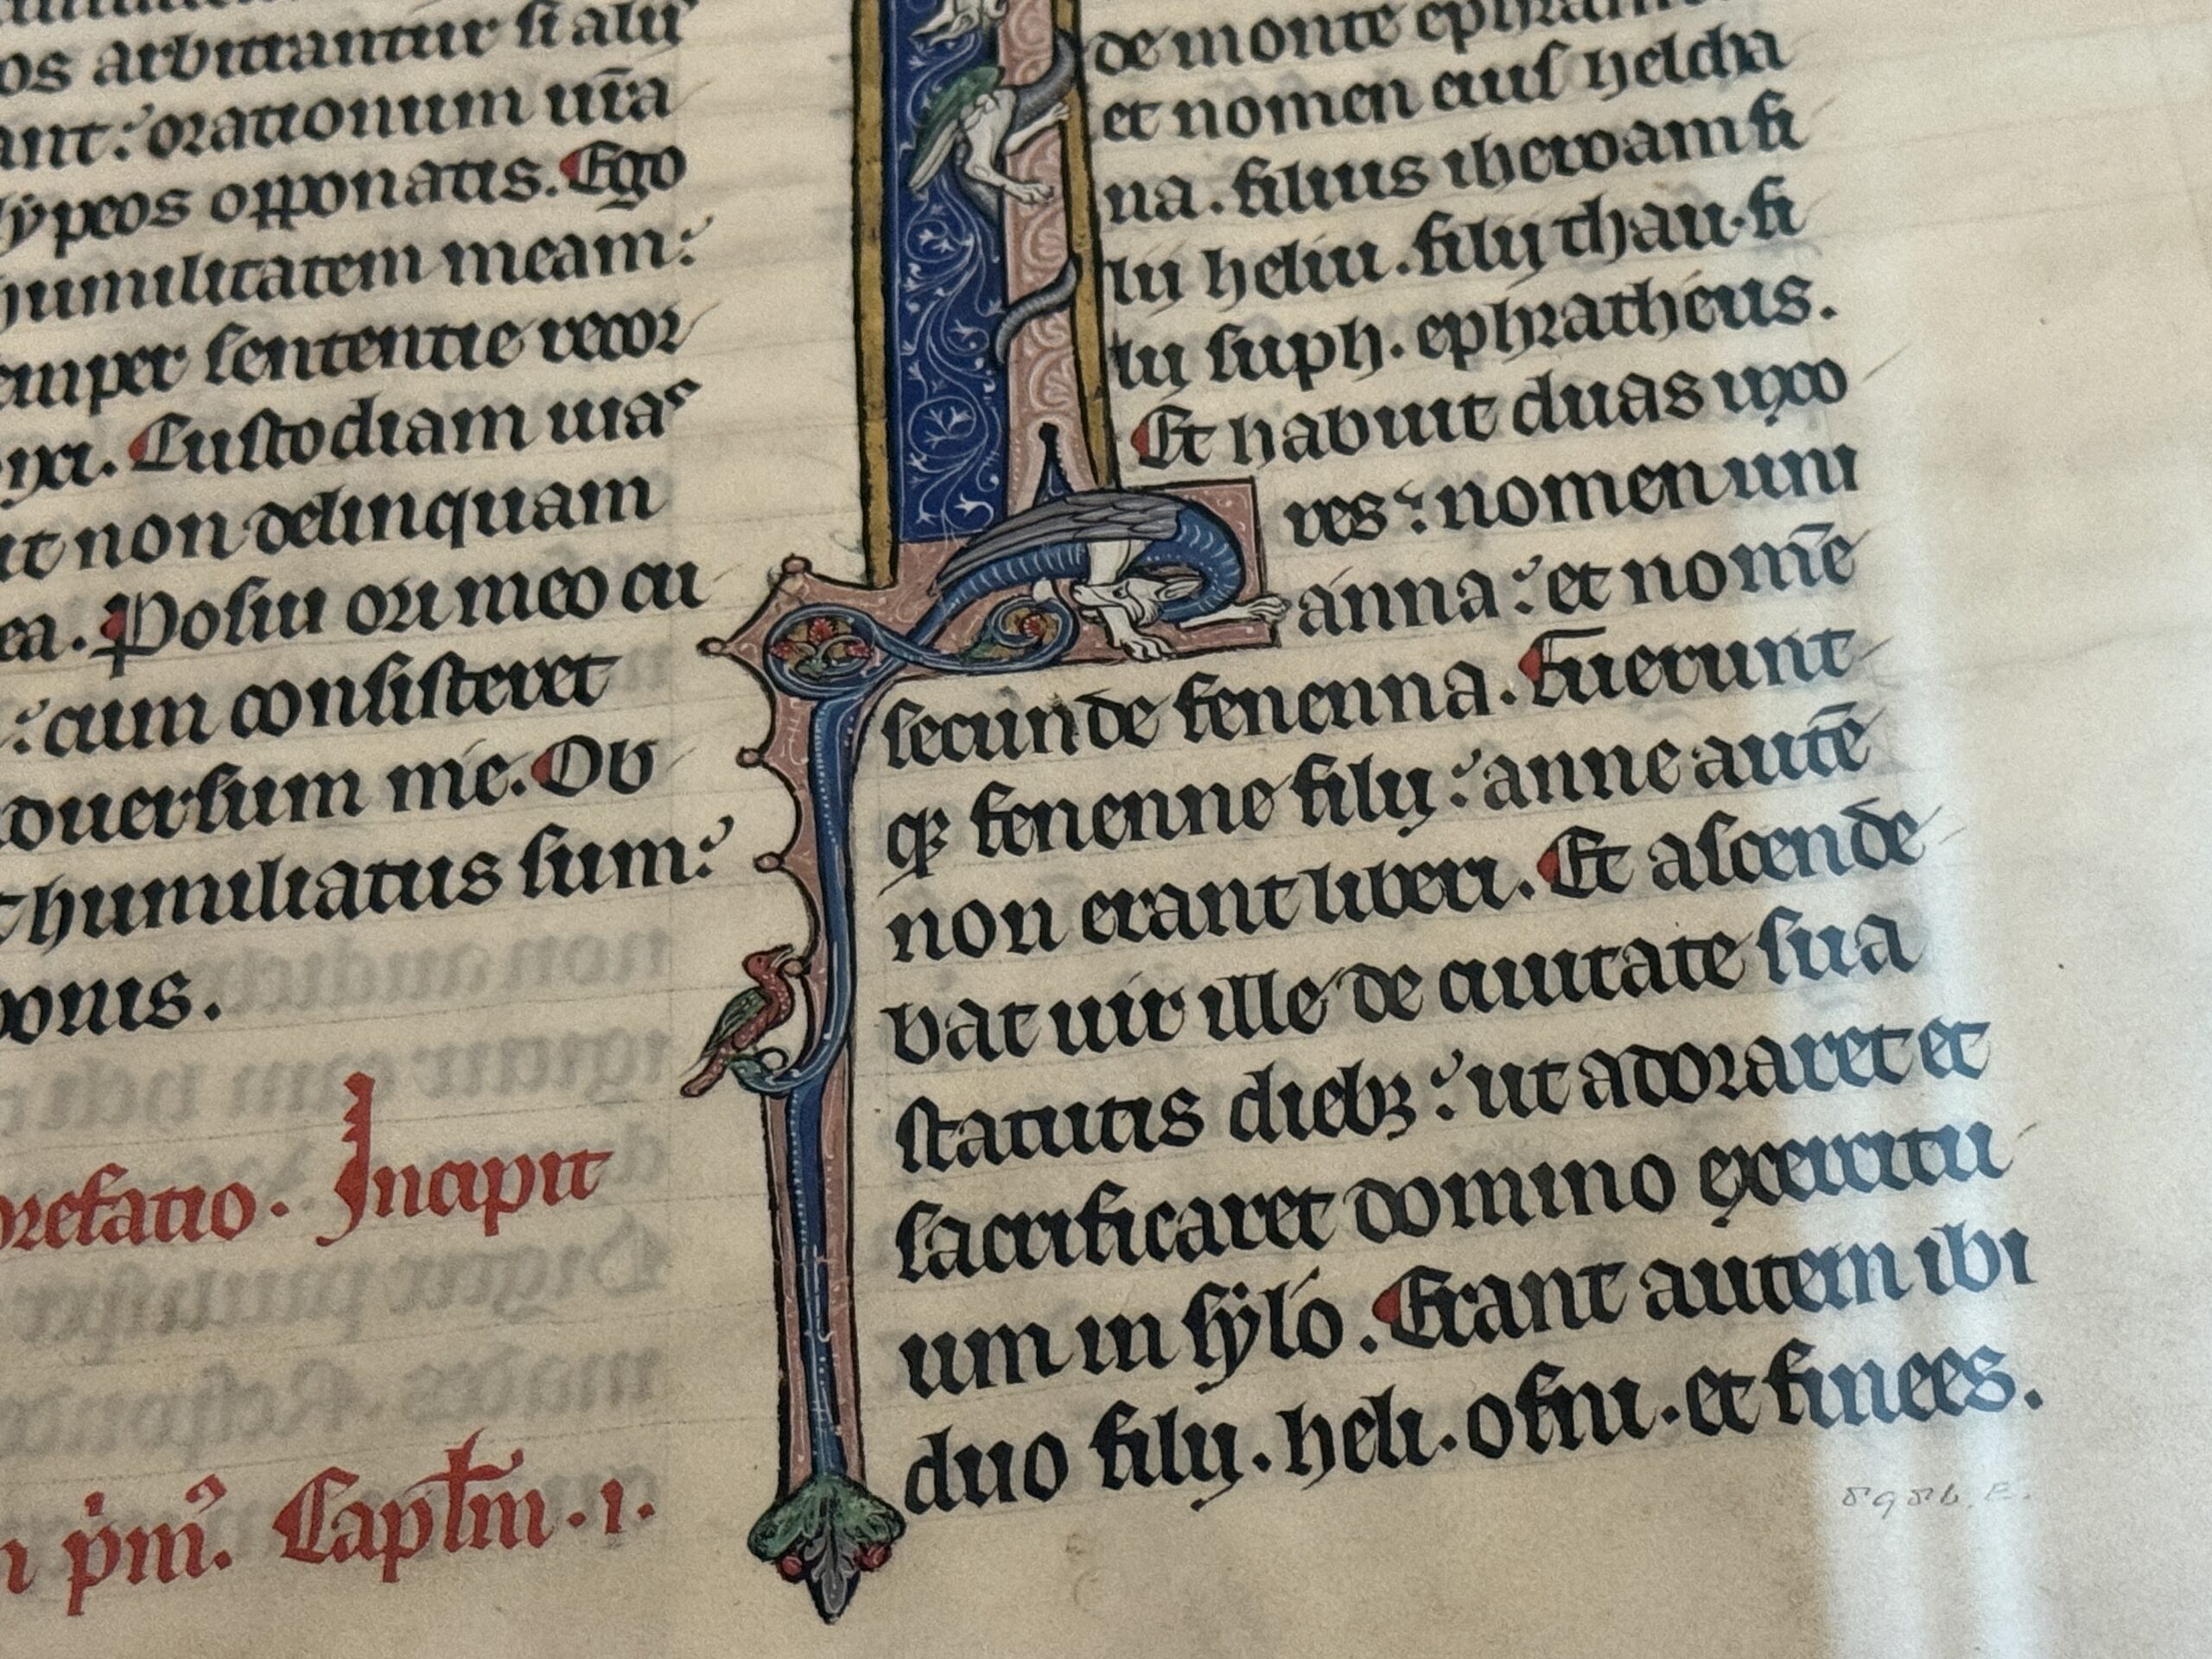 os arbitrantur si alij
ant: orationum ur̄a
lypeos opponatis. Ego
humilitatem meam:
emper sententie recor
yxi. Custodiam uias
ut non delinquam
ea. Posui ori meo cu
: cum consisteret
duersum me. Ob
t humiliatus sum:
bonis.
prefatio. Incipit
pm̄. Capl̄m .i.
de monte ephraim
et nomen eius helcha
na. filius iheroam fi
lij heliu. filij thau. fi
lij suph. ephratheus.
Et habuit duas uxo
res: nomen uni
anna: et nom̄e
secunde fenenna. Fuerunt
qꝫ fenenne filij: anne autē
non erant liberi. Et ascende
bat uir ille de ciuitate sua
statutis diebꝫ: ut adoraret et
sacrificaret domino exercitu
um in sylo. Erant autem ibi
duo filij. heli. ofni. et finees.